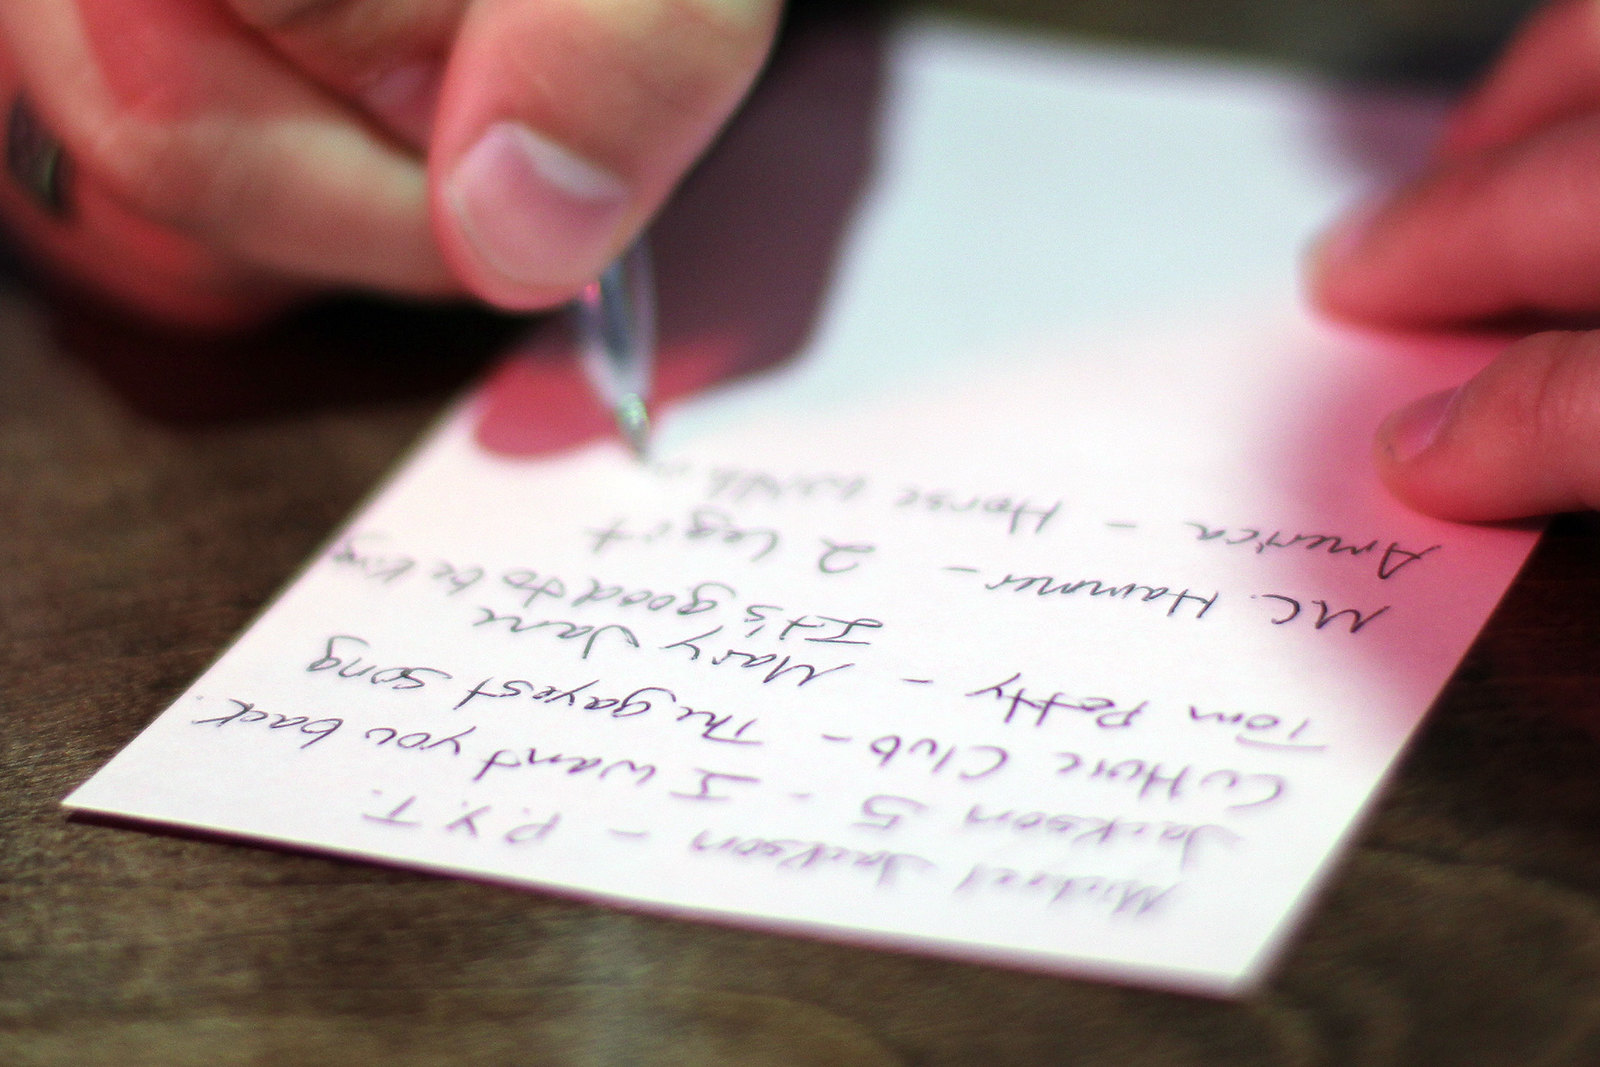 Michael Jackson - P.Y.T.
Jackson 5 - I want you back.
Culture Club - The gayest song
Tom Petty - Mary Jane
It's good to be king
MC. Hammer - 2 legit
America - Horse with n